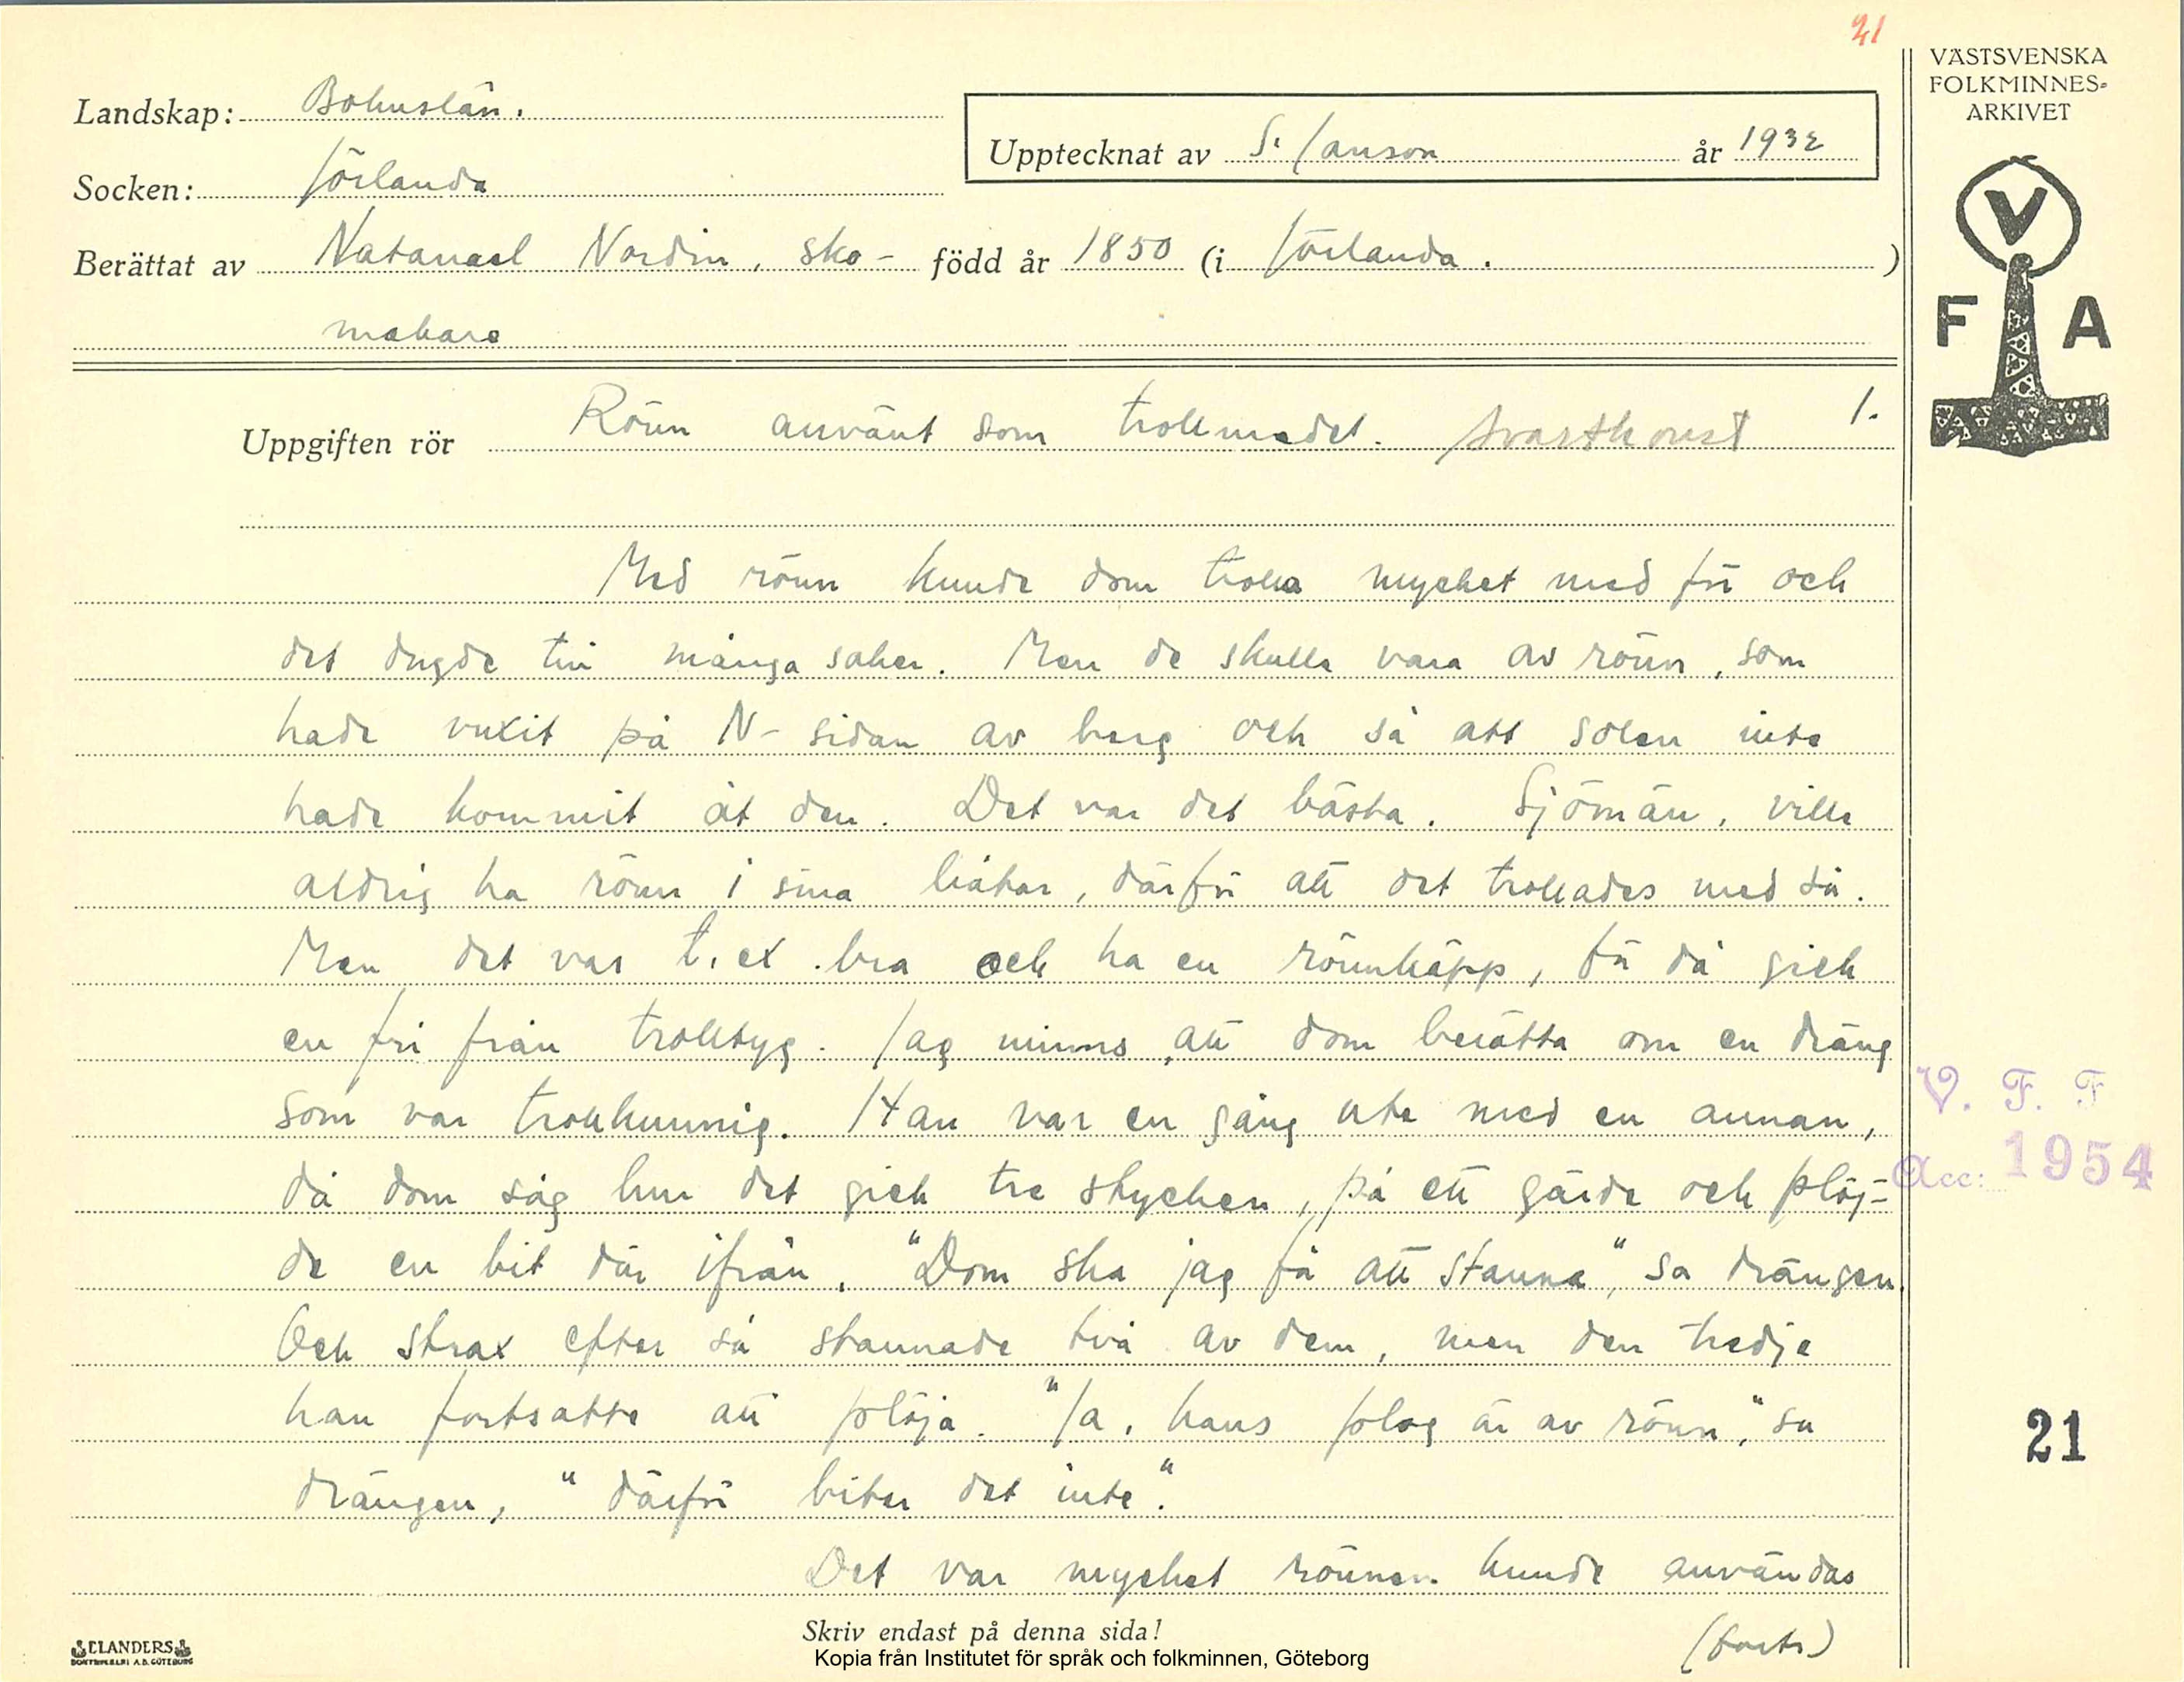 21
VÄSTSVENSKA
FOLKMINNES-
ARKIVET
Landskap: Bohuslän.
Upptecknat av S. Janson år 1932
Socken: Jörlanda
Berättat av Natanael Nordin, sko- född år 1850 (i Jörlanda.)
makare
V
F A
Uppgiften rör Rönn använt som trollmedel. svartkonst 1.
Med rönn kunde dom trolla mycket med för och
det dugde till många saker. Men de skulle vara av rönn, som
hade vuxit på N-sidan av berg och så att solen inte
hade kommit åt den. Det var det bästa. Sjömän, ville
aldrig ha rönn i sina båtar, därför att det trollades med så.
Men det var t. ex. bra och ha en rönnkäpp, för då gick
en fri från trolltyg. Jag minns, att dom berätta om en dräng
som var trollkunnig. Han var en gång ute med en annan,
då dom såg hur det gick tre stycken, på ett gärde och plöj-
de en bit där ifrån. "Dom ska jag få att stanna", sa drängen.
Och strax efter så stannade två av dem, men den tredje
han fortsatte att plöja. "Ja, hans plog är av rönn," sa
drängen, "därför biter det inte".
Det var mycket rönnen kunde användas
(forts)
V. F. F
Acc: 1954
21
Skriv endast på denna sida!
ELANDERS
BOKTRYCKERI A.B. GÖTEBORG
Kopia från Institutet för språk och folkminnen, Göteborg